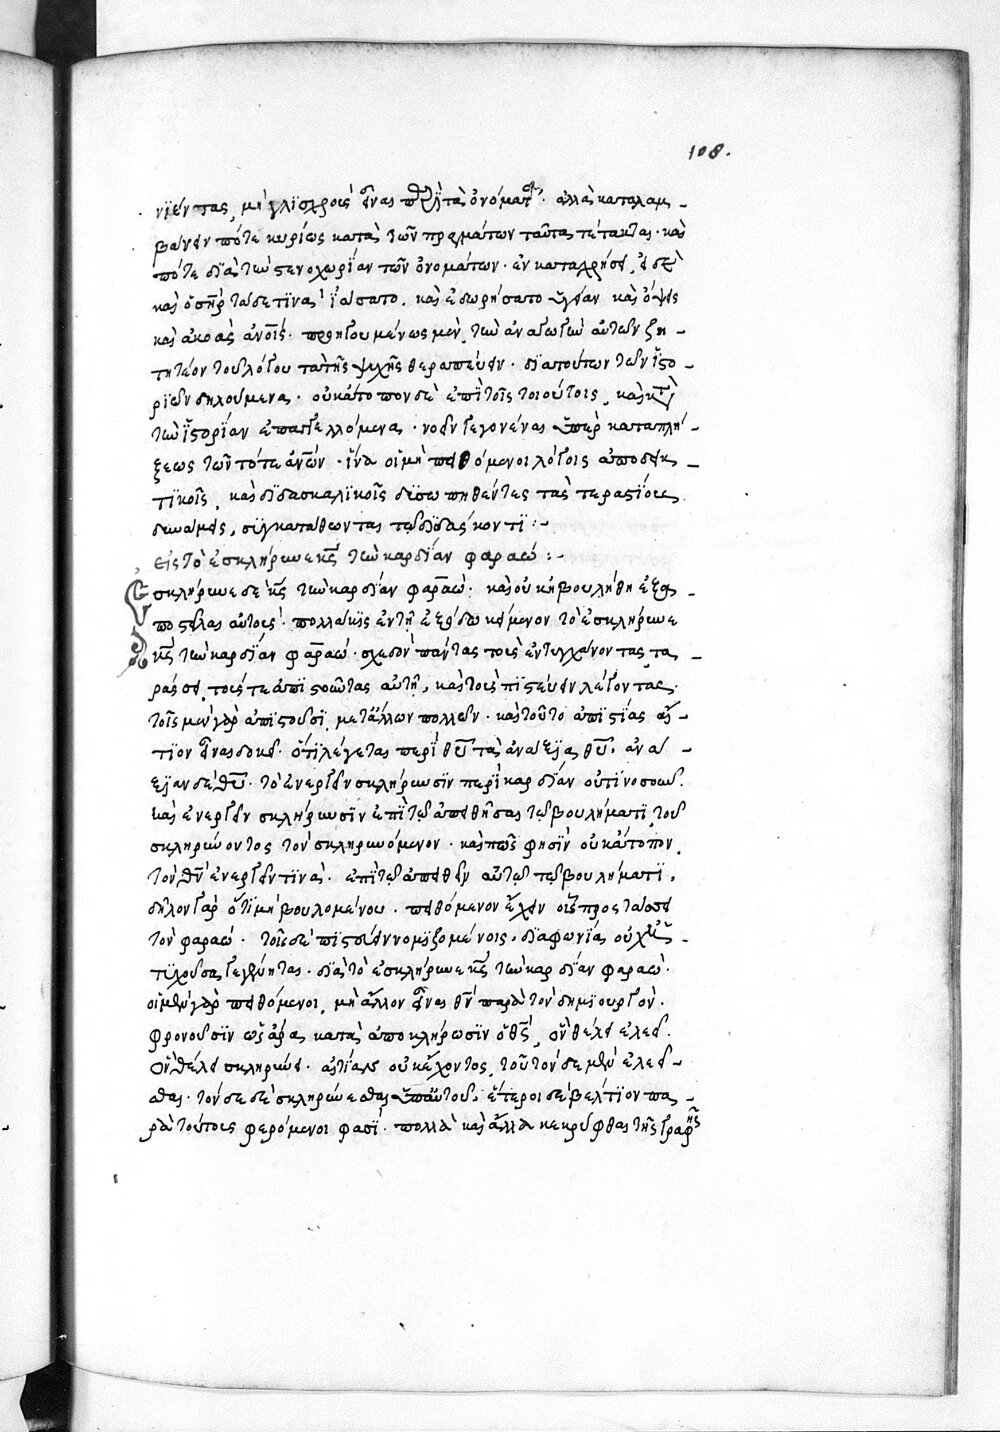 108.
νϊέντας, μὴ γλίσχρους εἶναι περὶ τὰ ὀνόματα· ἀλλὰ καταλαμ-
βάνειν πότε κυρίως κατὰ τῶν πραγμάτων ταῦτα τέτακται· καὶ
πότε διὰ τὴν στενοχωρίαν τῶν ὀνομάτων· ἐν καταχρήσει
καὶ ὁ σὴρ τοῖς δέ τινα ἰάσατο. καὶ ἐδωρήσατο ὑγείαν καὶ ὄψεις
καὶ ἀκοὰς ἀνοις· προηγουμένως μὲν τὴν ἀναγωγὴν αὐτῶν ζη-
τητέον τοῦ λόγου τὰ τῆς ψυχῆς θεραπεύειν· διὰ τούτων τῶν ἱστο-
ριῶν δηλούμενα· οὐκ ἄτοπον δὲ ἐπὶ τοῖς τοιούτοις, καὶ κατὰ
τὴν ἱστορίαν ἐπαγγελλόμενα· νοεῖν γεγονέναι ὑπὲρ καταπλή-
ξεως τῶν τότε ἀνων· ἵνα οἱ μὴ πειθόμενοι λόγοις ἀποδεικ-
τικοῖς, καὶ διδασκαλικοῖς δυσωπηθέντες τὰς τεραστίους
δυνάμεις, συγκατάθωνται τῷ διδάσκοντι :-
Εἰς τὸ ἐσκλήρυνε κς τὴν καρδίαν φαραώ :-
Ἐσκλήρυνε δὲ κς τὴν καρδίαν φαραώ· καὶ οὐκ ἠβουλήθη ἐξα-
ποστεῖλαι αὐτούς· πολλάκις ἐν τῇ ἐξόδῳ κείμενον τὸ ἐσκλήρυνε
κς τὴν καρδίαν φαραώ· σχεδὸν πάντας τοὺς ἐντυγχάνοντας τα-
ράσσει, τούς τε ἀπιστοῦντας αὐτῇ, καὶ τοὺς πιστεύειν λέγοντας·
τοῖς μὲν γὰρ ἀπιστοῦσι, μετ' ἄλλων πολλῶν· καὶ τοῦτο ἀπιστίας αἴ-
τιον εἶναι δοκεῖ· ὅτι λέγεται περὶ θυ τὰ ἀνάξια θυ· ἀνάξ-
ιον δὲ θυ· τὸ ἐνεργεῖν σκλήρυνσιν περὶ καρδίαν οὑτινοσοῦν·
καὶ ἐνεργεῖν σκλήρυνσιν ἐπὶ τῷ ἀπειθῆσαι τῷ βουλήματι τοῦ
σκληρύνοντος τὸν σκληρυνόμενον· καὶ πῶς φησὶν οὐκ ἄτοπον,
τὸν θν ἐνεργεῖν τινα· ἐπὶ τῷ ἀπειθεῖν αὐτῷ τῷ βουλήματι,
δῆλον γὰρ ὅτι μὴ βουλομένου· πειθόμενον ἔχειν οἷς προστάσσει
τὸν φαραώ· τοῖς δὲ πιστεύειν νομιζομένοις, διαφωνία οὐχ ἡ
τυχοῦσα γεγένηται· διὰ τὸ ἐσκλήρυνε κς τὴν καρδίαν φαραώ·
οἱ μὲν γὰρ πειθόμενοι, μὴ ἄλλον εἶναι θν παρὰ τὸν δημιουργόν·
φρονοῦσιν ὡς ἄρα, κατὰ ἀποκλήρωσιν ὁ θς, ὃν θέλει ἐλεεῖ.
ὃν θέλει σκληρύνει· αἰτίαν οὐκ ἔχοντος, τοῦ τόνδε μὲν ἐλεεῖ-
σθαι· τόνδε δὲ σκληρύνεσθαι ὑπ' αὐτοῦ, ἕτεροι δὲ βέλτιον πα-
ρὰ τούτους φερόμενοι φασί· πολλὰ καὶ ἄλλα κεκρύφθαι τῆς γραφῆς